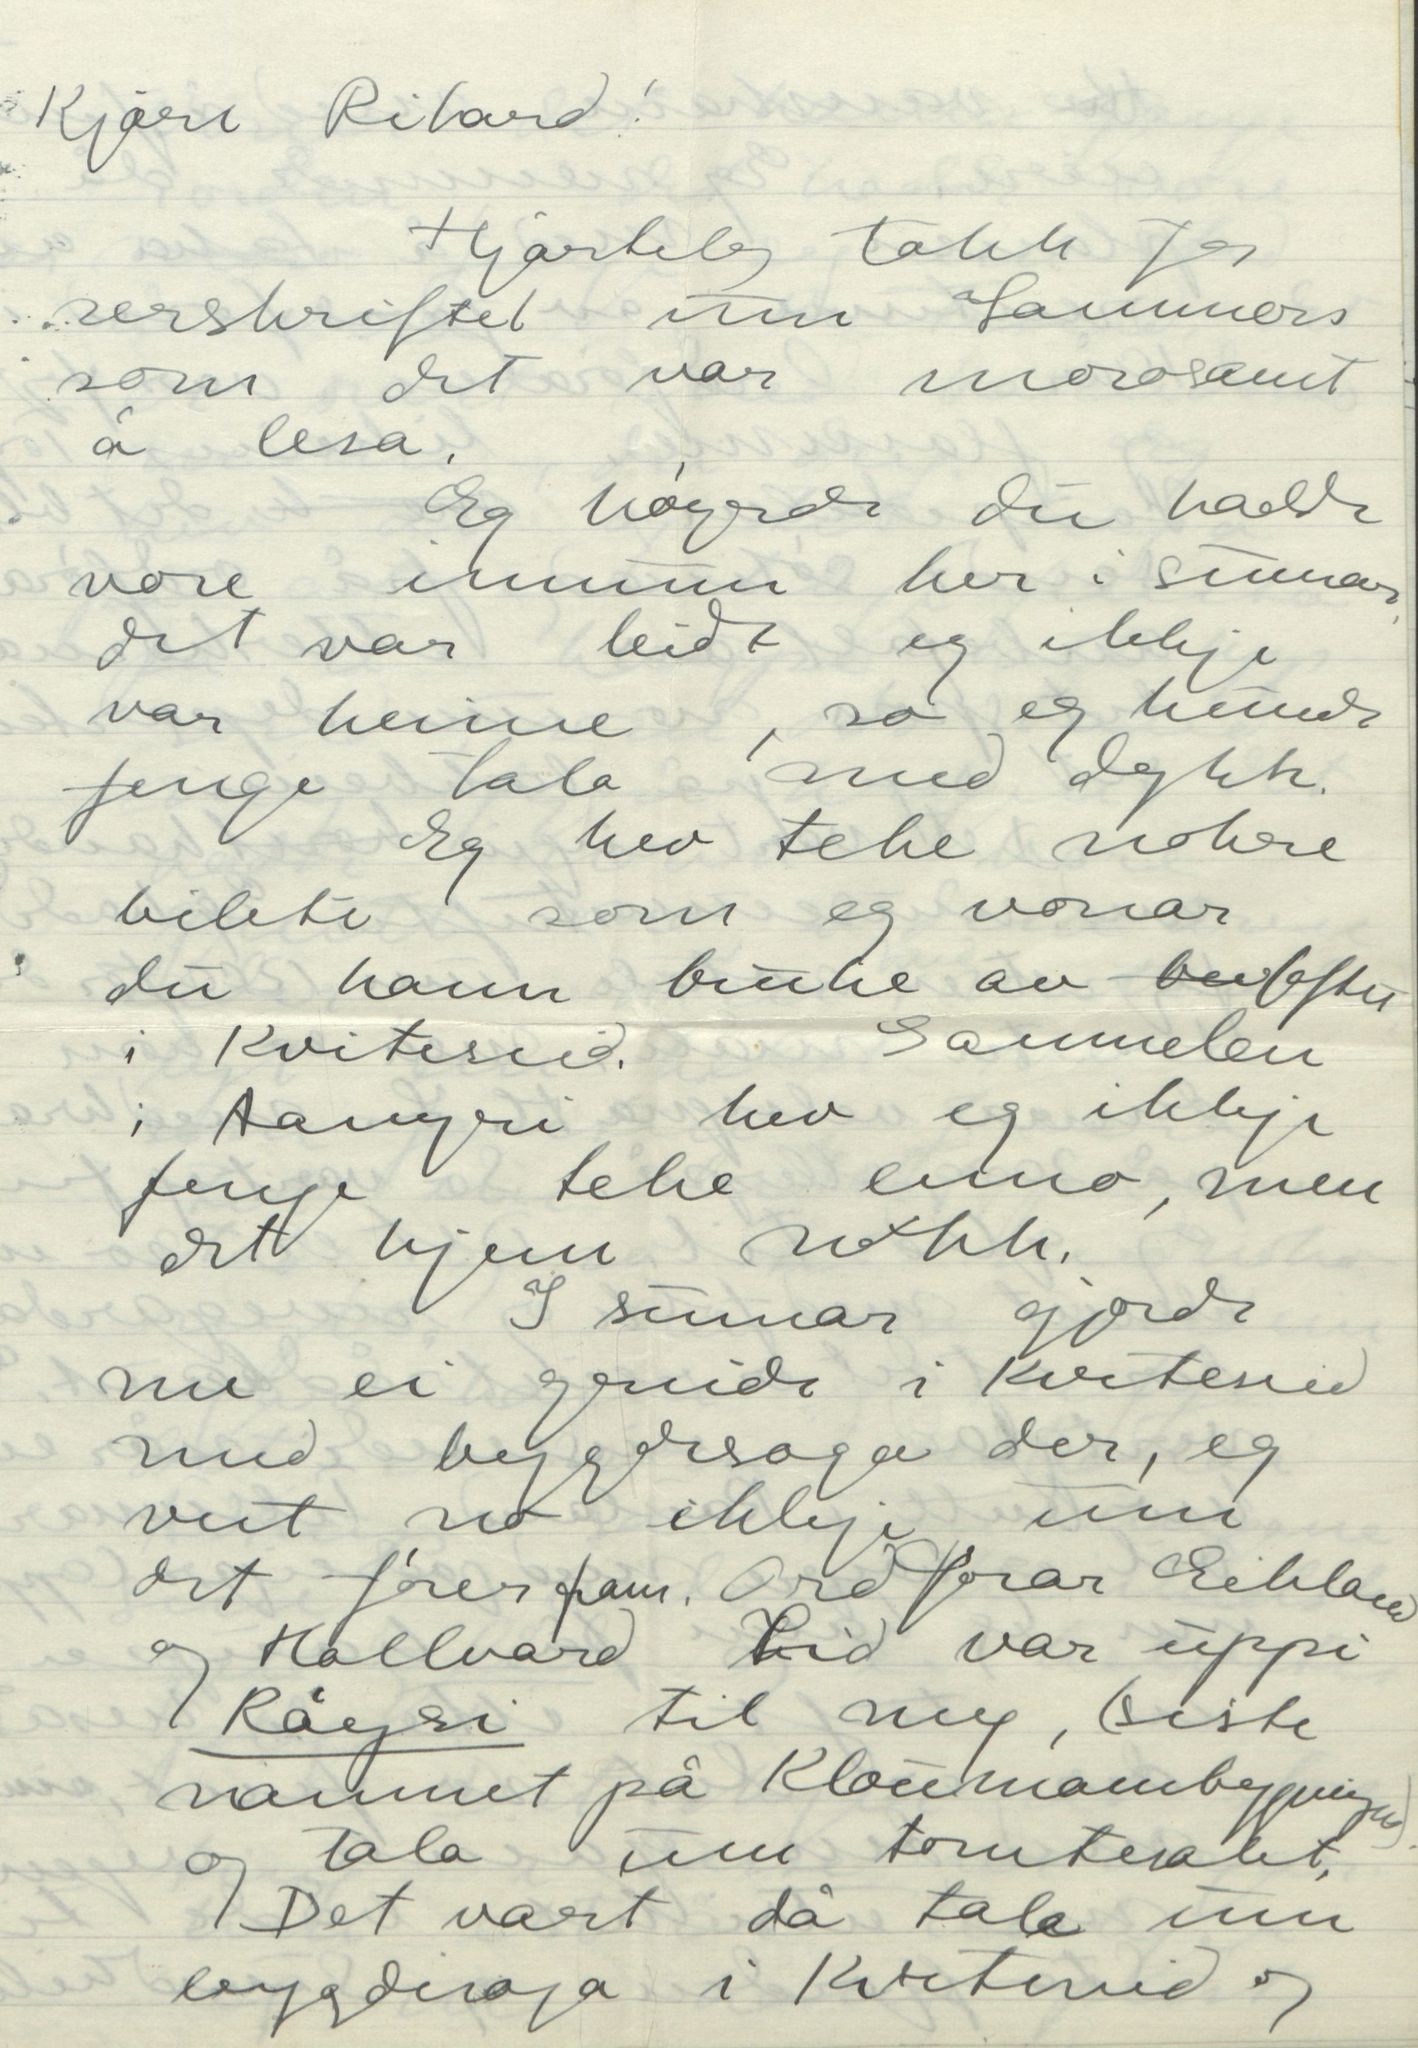 Kjære Rikard!
Hjarteleg takk for
serskriftet um Sammers
som det var morosamt
å lesa.
Eg høyrde du hadde
vore innum her i sumar,
det var leidt eg ikkje
var heime, so eg kunde
fenge tala med dykk.
Eg hev teke nokre
bilete som eg vonar
du kann bruke av loftet
i Kviteseid. Sammelen
i hev eg ikkje
fenge teke enno, men
det kjem nokk.
I sumar gjorde
me ei greide i Kviteseid
med bygdesoga der, eg
veit no ikkje um
det fører fram. Ordførar Eikland
og Hallvard Lid var uppi
Røysi til meg, (siste
namnet på Kloumannbygningen)
og tala um tomtesalet.
Det vart då tala um
bygdesoga i Kviteseid og